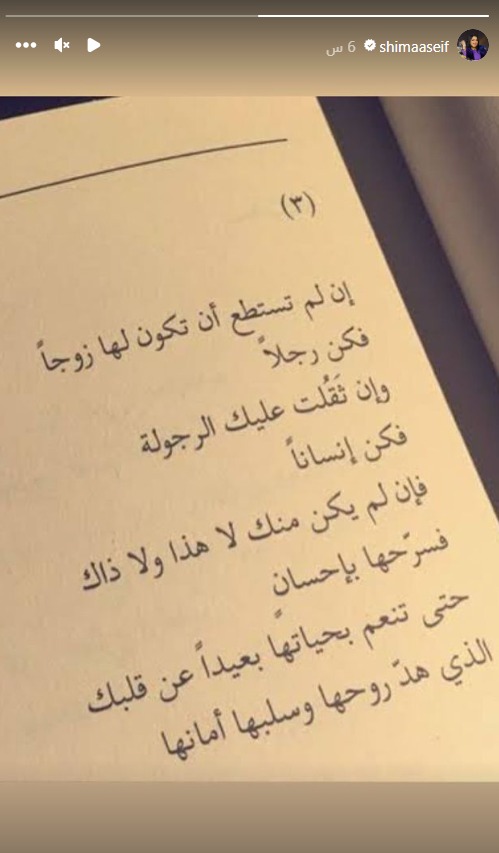 shimaaseif 6 س
(٣)
إن لم تستطع أن تكون لها زوجاً
فكن رجلاً
وإن ثَقُلت عليك الرجولة
فكن إنساناً
فإن لم يكن منك لا هذا ولا ذاك
فسرّحها بإحسانٍ
حتى تنعم بحياتها بعيداً عن قلبك
الذي هدّ روحها وسلبها أمانها